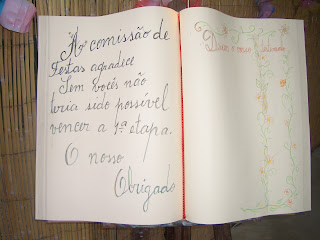 A comissão de
Festas agradece
Sem vocês não
teria sido possível
vencer a 1ª etapa.
O nosso
Obrigado
Deixe o nosso